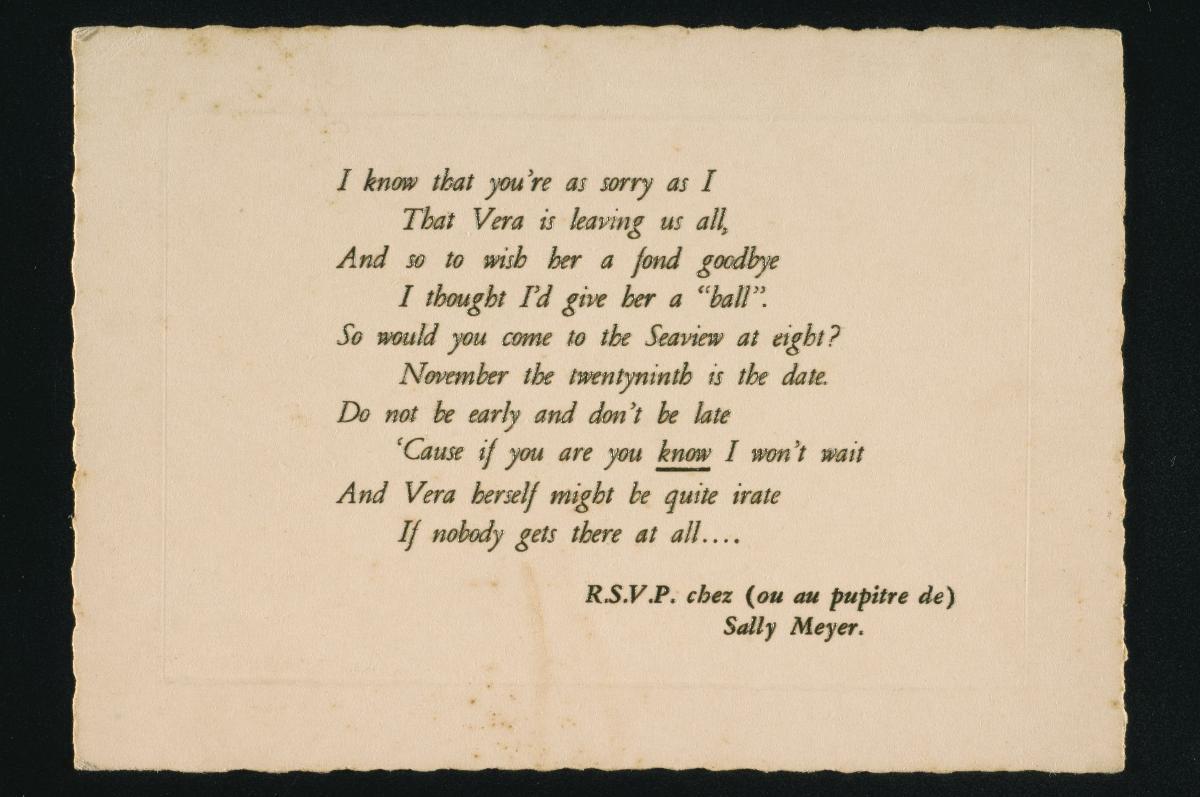 I know that you're as sorry as I
That Vera is leaving us all,
And so to wish her a fond goodbye
I thought I'd give her a “ball”.
So would you come to the Seaview at eight?
November the twentyninth is the date.
Do not be early and don't be late
‘Cause if you are you know I won't wait
And Vera herself might be quite irate
If nobody gets there at all....
R.S.V.P. chez (ou au pupitre de)
Sally Meyer.